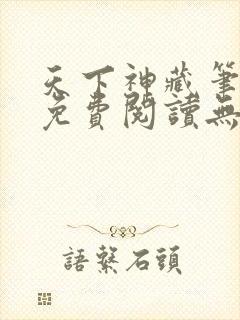 天下神藏筆
免費閱讀無
語繫石頭